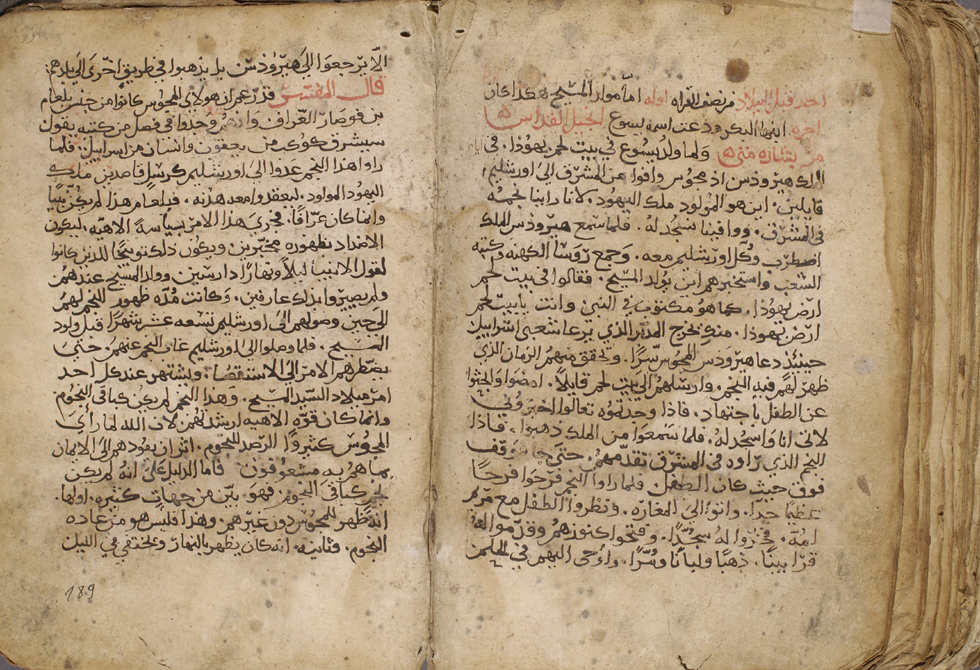 احد قبل الميلاد من نصف القراه اوله اما مولد المسيح هكذا كان
اخره ابنها البكر ودعت اسمه يسوع الانجيل المقدس
من بشارة متى ولما ولد يسوع في بيت لحم يهوذا. في ايام
الملك هيرودس اذ مجوس وافوا من المشرق الى اورشليم
قايلين. اين هو المولود ملك اليهود. لاننا راينا نجمه
في المشرق. ووافينا لنسجد له. فلما سمع هيرودس الملك
اضطرب وكل اورشليم معه. وجمع روسا الكهنه وكتبة
الشعب واستخبرهم اين يولد المسيح. فقالوا في بيت لحم
ارض يهوذا. كما هو مكتوب في النبي وانت يا بيت لحم
ارض يهوذا. منك يخرج المدبر الذي يرعا شعبي اسراييل
حينئذ دعا هيرودس المجوس سرًا. وتحقق منهم الزمان الذي
ظهر لهم فيه النجم. وارسلهم الى بيت لحم قايلاً. امضوا وابحثوا
عن الطفل باجتهاد. فاذا وجدتموه تعالوا اخبروني
لاتي انا واسجد له. فلما سمعوا من الملك ذهبوا. فاذا
النجم الذي راوه في المشرق تقدمهم. حتى جا ووقف
فوق حيث كان الطفل فلما راوا النجم فرحوا فرحًا
عظيمًا جدًا. واتوا الى المغاره. ونظروا الطفل مع مريم
امه. فخروا له سجدًا. وفتحوا كنوزهم وقدموا له
قرابينًا. ذهبًا ولبانًا ومرًا. واوحى اليهم في الحلم
الا يرجعوا الى هيرودس بل يذهبوا في طريق اخرى الى بلادهم
قال المفسر قد زعم ان هولاي المجوس كانوا من جنس بلعام
بن فوصار العراف وانهم وجدوا في فصل من كتبه يقول
سيشرق كوكب من يعقوب وانسان من اسراييل. فلما
راوا هذا النجم غدوا الى اورشليم كرسل قاصدين ملك
اليهود المولود. ليعقدوا معه هدنه. فبلعام هذا لم يكن نبيًا
وانما كان عرافًا. فجرى هذا الامر بسياسة الاهيه. ليكون
الاضداد بظهوره مخبرين ويكون ذلك توبيخًا للذين كانوا
لقول الانبيا ليلاً ونهارًا دارسين. وولد المسيح عندهم
ولم يصيروا بذلك عارفين. وكانت مدة ظهور النجم لهم
الى حين وصولهم الى اورشليم تسعه عشر شهرًا قبل ولود
المسيح. فلما وصلوا الى اورشليم غاب النجم عنهم. حتى
يضطرهم الامر الى الاستقصا. ويشتهر عند كل احد
امر ميلاد السيد المسيح. وهذا النجم لم يكن كباقي النجوم
وانما كان قوه الاهيه ارشدتهم لان الله لما راى
المجوس كثيروا الرصد للنجوم. اثر ان يقودهم الى الايمان
بما هم به مشغوفون فاما الدليل على انه لم يكن
نجم كباقي النجوم. فهو بين من جهات كثيره. اولها.
انه ظهر للمجوس دون غيرهم. وهذا فليس هو من عادة
النجوم. وثانيه. انه كان يظهر بالنهار ويختفي في الليل
189